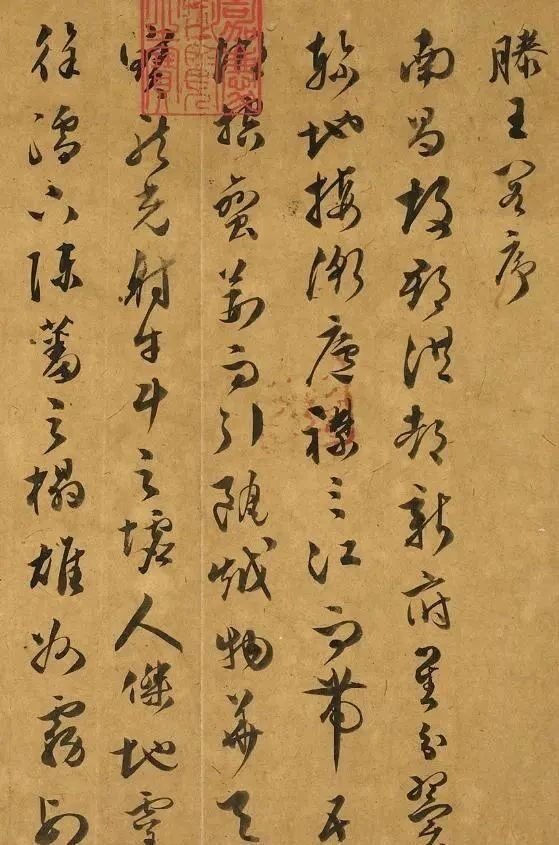 滕王閣序
南昌故郡洪都新府星分翼
軫地接衡廬襟三江而帶五
湖控蠻荊而引甌越物華天
寶龍光射牛斗之墟人傑地靈
徐孺下陳蕃之榻雄州霧列